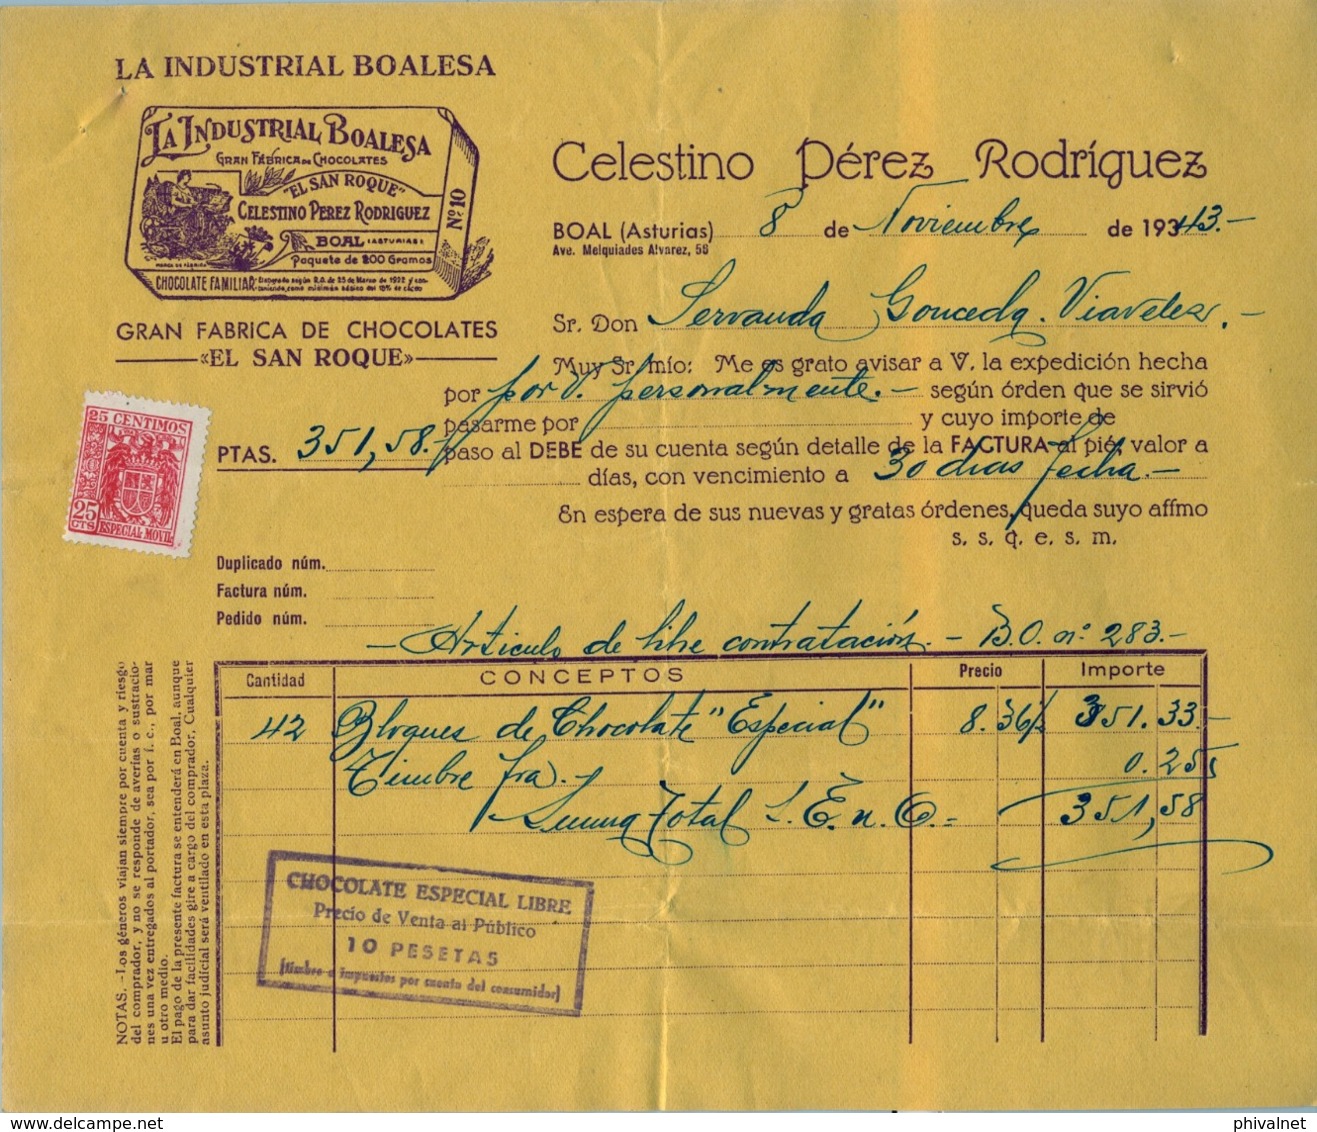 LA INDUSTRIAL BOALESA
LA INDUSTRIAL BOALESA
GRAN FÁBRICA DE CHOCOLATES
"EL SAN ROQUE"
CELESTINO PEREZ RODRIGUEZ
BOAL (ASTURIAS)
Paquete de 200 Gramos
Nº 10
MARCA DE FÁBRICA
CHOCOLATE FAMILIAR
GRAN FABRICA DE CHOCOLATES
«EL SAN ROQUE»
Celestino Pérez Rodríguez
BOAL (Asturias) 8 de Noviembre de 19343.-
Ave. Melquiades Alvarez, 58
Sr. Don Servanda Gonceda. Viavelez.-
Muy Sr. mío: Me es grato avisar a V. la expedición hecha
por por V. personalmente.- según órden que se sirvió
pasarme por y cuyo importe de
PTAS. 351,58.- paso al DEBE de su cuenta según detalle de la FACTURA al pié, valor a
días, con vencimiento a 30 dias fecha.-
En espera de sus nuevas y gratas órdenes, queda suyo affmo
s. s. q. e. s. m.
25 CENTIMOS
25 CTS
ESPECIAL MOVIL
Duplicado núm.
Factura núm.
Pedido núm.
- Artículo de libre contratación. - B.O. nº 283.-
Cantidad CONCEPTOS Precio Importe
42 Bloques de Chocolate "Especial" 8.36 351.33.-
Timbre fra. 0.25
Suma Total S.E.u.O.= 351,58
CHOCOLATE ESPECIAL LIBRE
Precio de Venta al Público
10 PESETAS
(timbre e impuestos por cuenta del consumidor)
NOTAS.-Los géneros viajan siempre por cuenta y riesgo
del comprador, y no se responde de averías o sustraccio-
nes una vez entregados al portador, sea por f. c., por mar
u otro medio.
El pago de la presente factura se entenderá en Boal, aunque
para dar facilidades gire a cargo del comprador, Cualquier
asunto judicial será ventilado en esta plaza.
www.delcampe.net
phivalnet